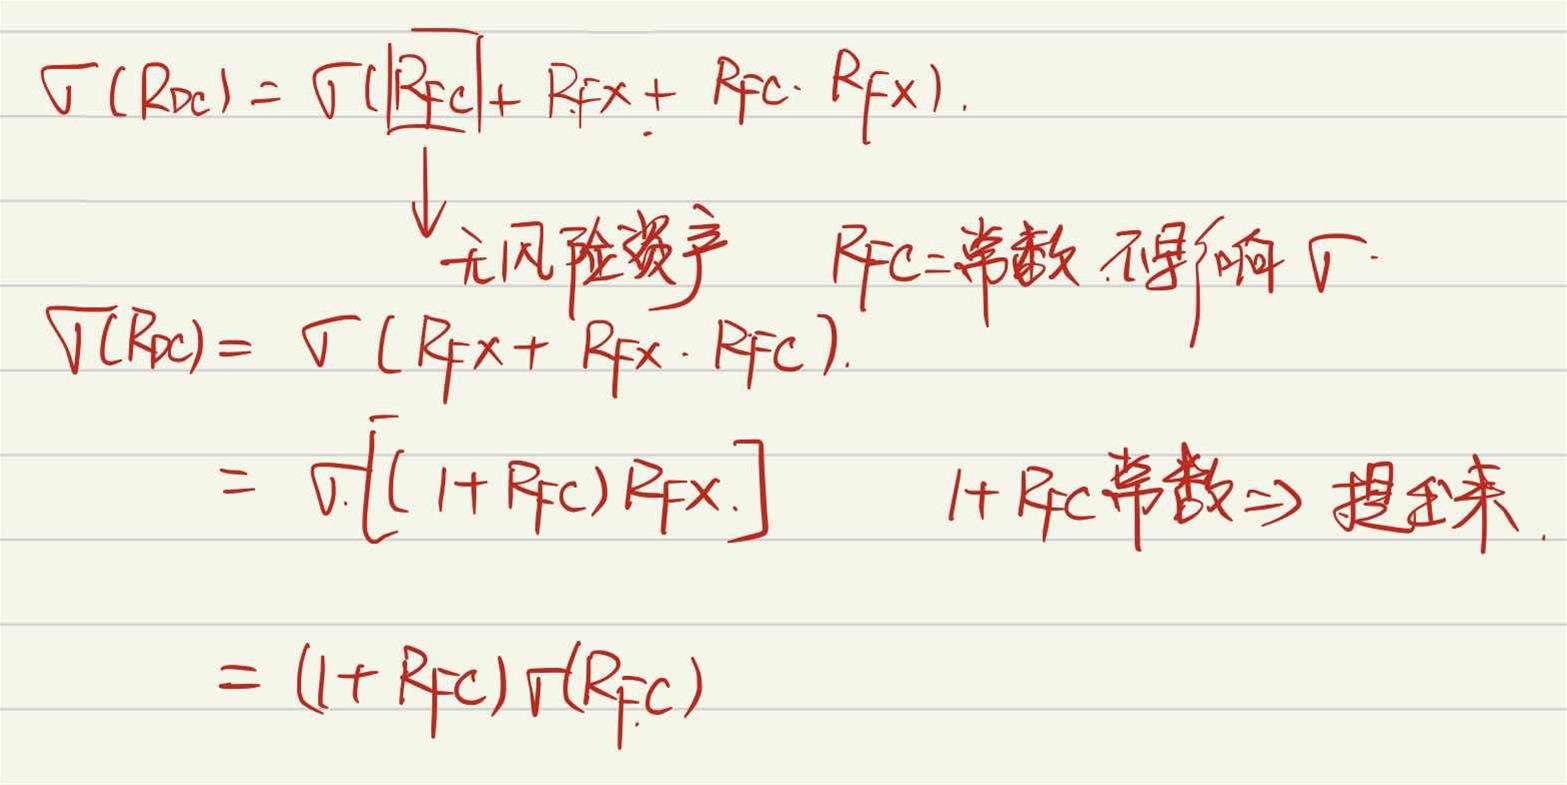 σ(R_DC) = σ(R_FC + R_FX + R_FC · R_FX).
无风险资产 R_FC = 常数 不影响 σ.
σ(R_DC) = σ(R_FX + R_FX · R_FC).
= σ[(1 + R_FC) R_FX.] 1 + R_FC 常数 ⇒ 提出来.
= (1 + R_FC) σ(R_FC)